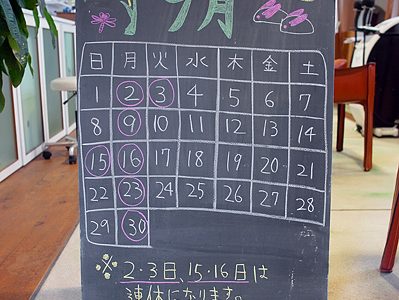 9月
日 月 火 水 木 金 土
1 2 3 4 5 6 7
8 9 10 11 12 13 14
15 16 17 18 19 20 21
22 23 24 25 26 27 28
29 30
※ 2・3日、15・16日は
連休になります。